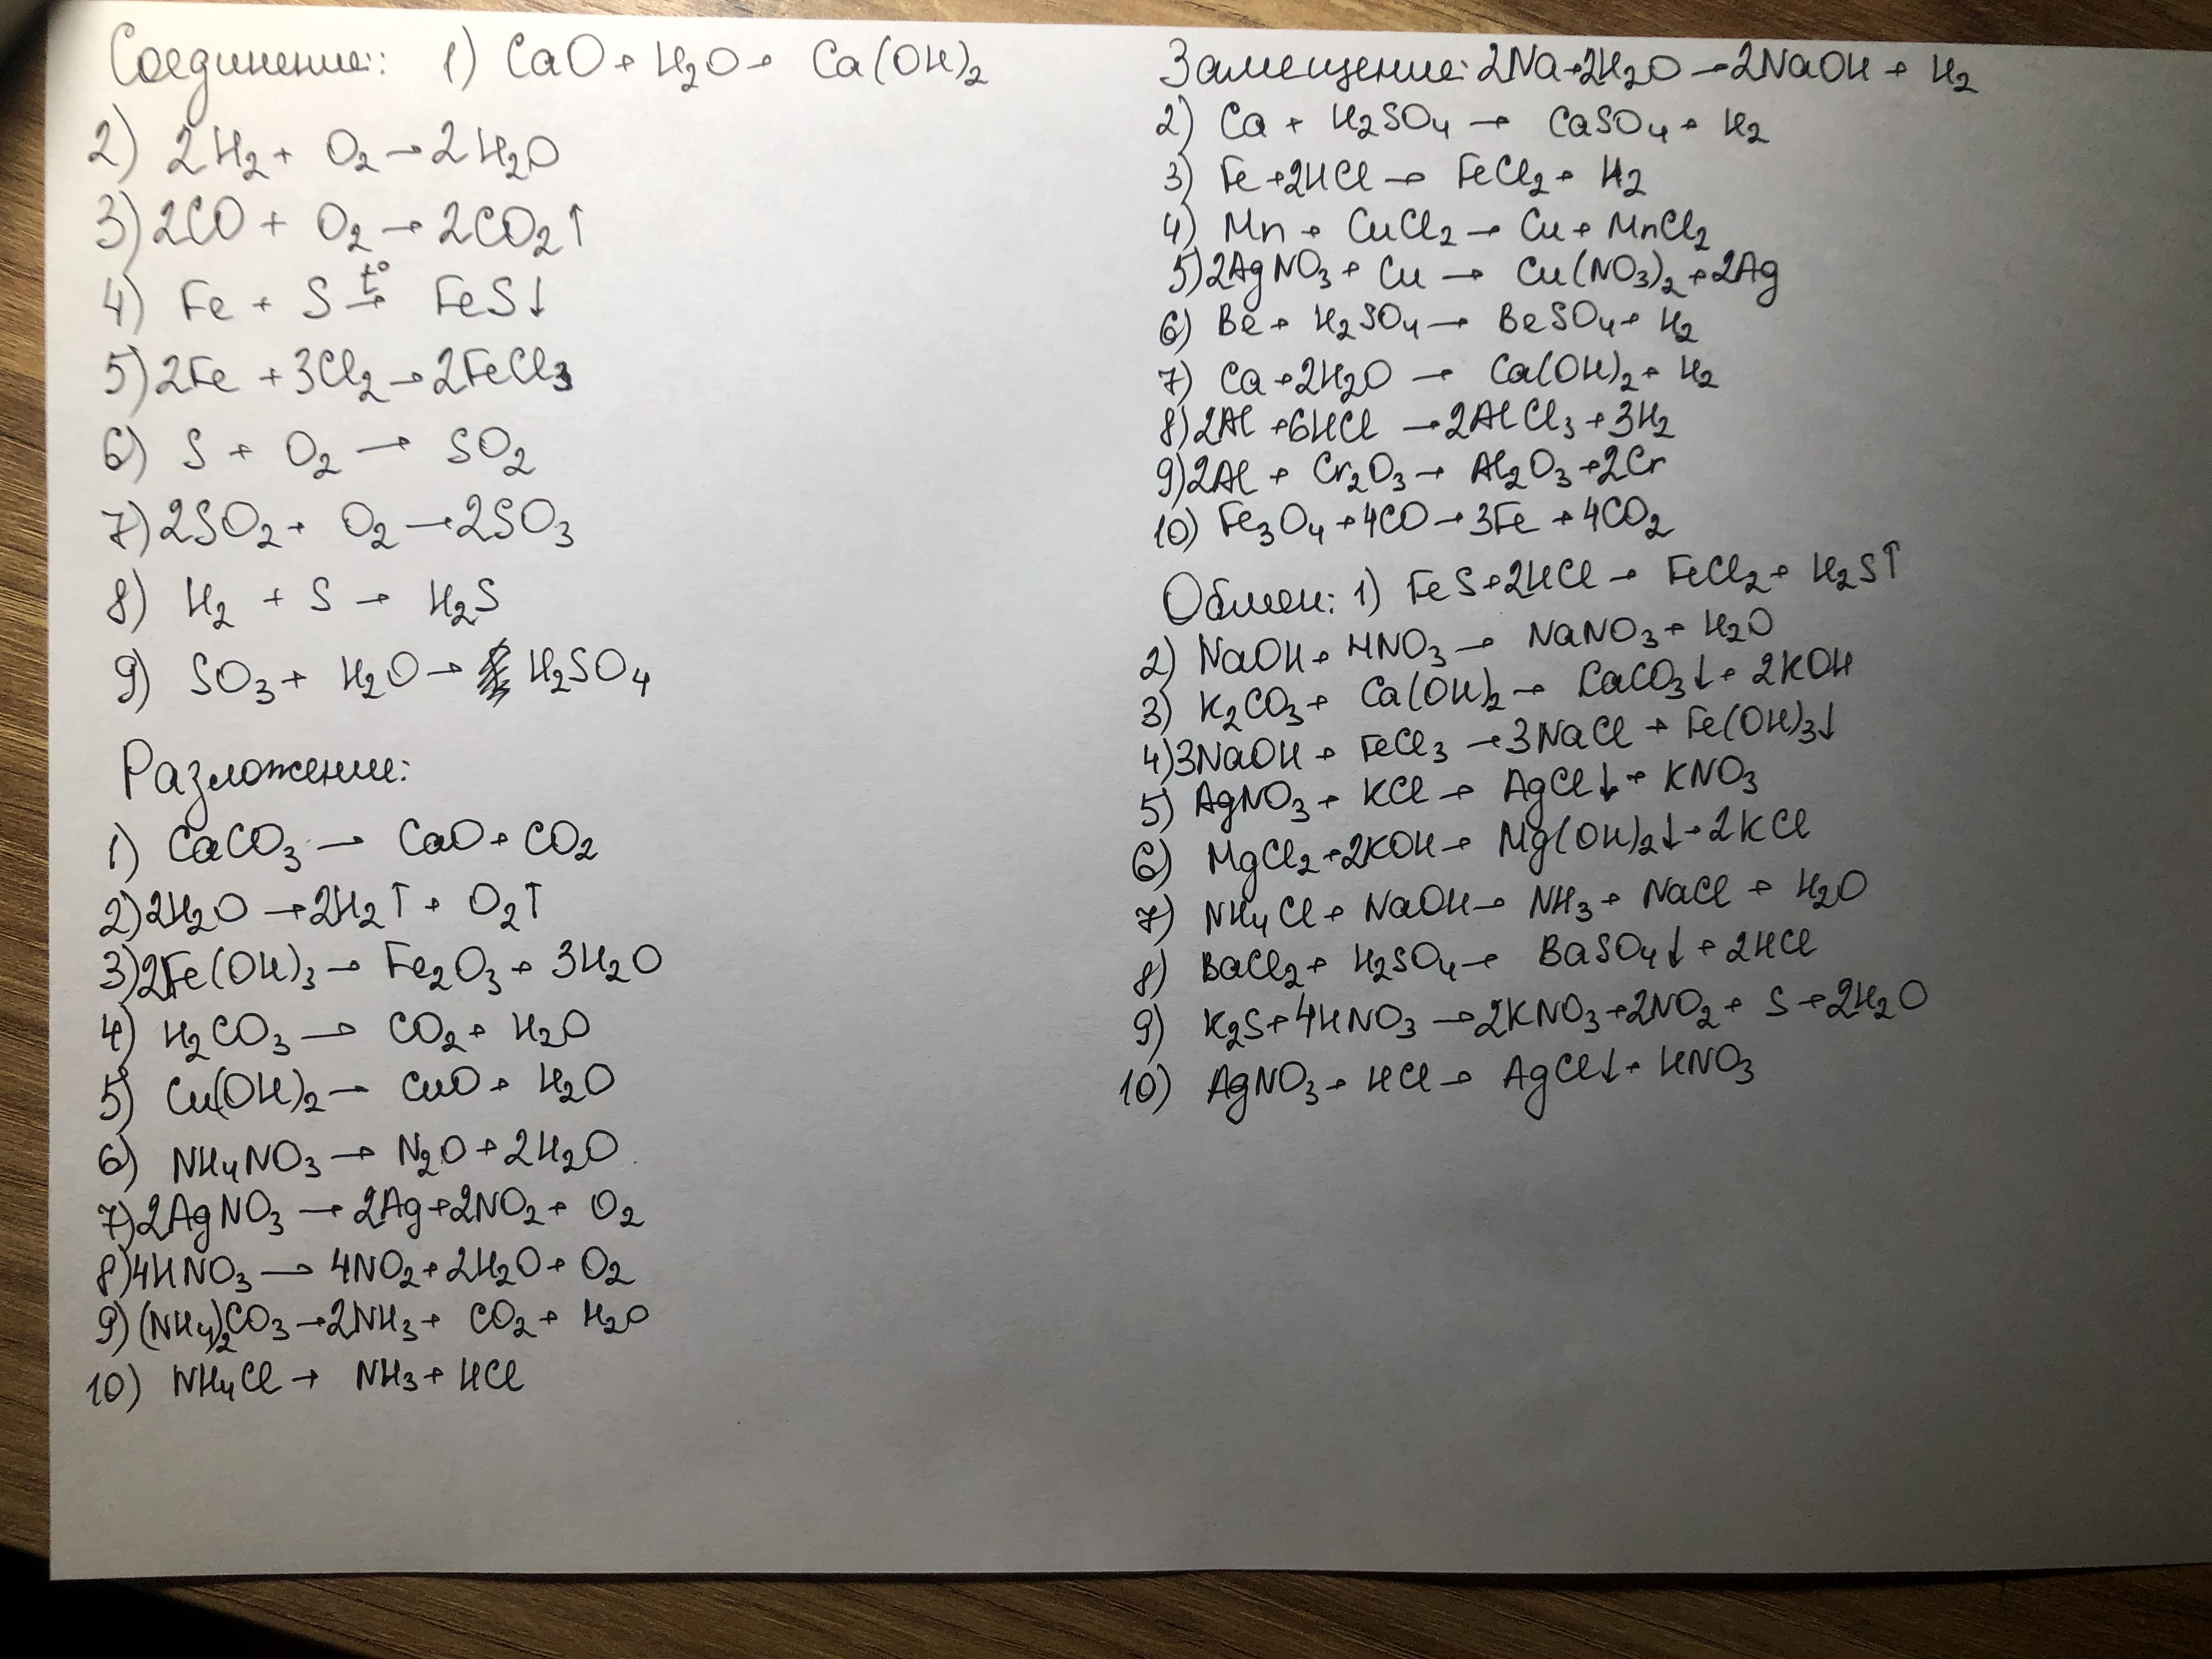 Соединение: 1) CaO + H₂O → Ca(OH)₂
2) 2H₂ + O₂ → 2H₂O
3) 2CO + O₂ → 2CO₂↑
4) Fe + S t°→ FeS↓
5) 2Fe + 3Cl₂ → 2FeCl₃
6) S + O₂ → SO₂
7) 2SO₂ + O₂ → 2SO₃
8) H₂ + S → H₂S
9) SO₃ + H₂O → H₂SO₄
Разложение:
1) CaCO₃ → CaO + CO₂
2) 2H₂O → 2H₂↑ + O₂↑
3) 2Fe(OH)₃ → Fe₂O₃ + 3H₂O
4) H₂CO₃ → CO₂ + H₂O
5) Cu(OH)₂ → CuO + H₂O
6) NH₄NO₃ → N₂O + 2H₂O
7) 2AgNO₃ → 2Ag + 2NO₂ + O₂
8) 4HNO₃ → 4NO₂ + 2H₂O + O₂
9) (NH₄)₂CO₃ → 2NH₃ + CO₂ + H₂O
10) NH₄Cl → NH₃ + HCl
Замещение: 2Na + 2H₂O → 2NaOH + H₂
2) Ca + H₂SO₄ → CaSO₄ + H₂
3) Fe + 2HCl → FeCl₂ + H₂
4) Mn + CuCl₂ → Cu + MnCl₂
5) 2AgNO₃ + Cu → Cu(NO₃)₂ + 2Ag
6) Be + H₂SO₄ → BeSO₄ + H₂
7) Ca + 2H₂O → Ca(OH)₂ + H₂
8) 2Al + 6HCl → 2AlCl₃ + 3H₂
9) 2Al + Cr₂O₃ → Al₂O₃ + 2Cr
10) Fe₃O₄ + 4CO → 3Fe + 4CO₂
Обмен: 1) FeS + 2HCl → FeCl₂ + H₂S↑
2) NaOH + HNO₃ → NaNO₃ + H₂O
3) K₂CO₃ + Ca(OH)₂ → CaCO₃↓ + 2KOH
4) 3NaOH + FeCl₃ → 3NaCl + Fe(OH)₃↓
5) AgNO₃ + KCl → AgCl↓ + KNO₃
6) MgCl₂ + 2KOH → Mg(OH)₂↓ + 2KCl
7) NH₄Cl + NaOH → NH₃ + NaCl + H₂O
8) BaCl₂ + H₂SO₄ → BaSO₄↓ + 2HCl
9) K₂S + 4HNO₃ → 2KNO₃ + 2NO₂ + S + 2H₂O
10) AgNO₃ + HCl → AgCl↓ + HNO₃